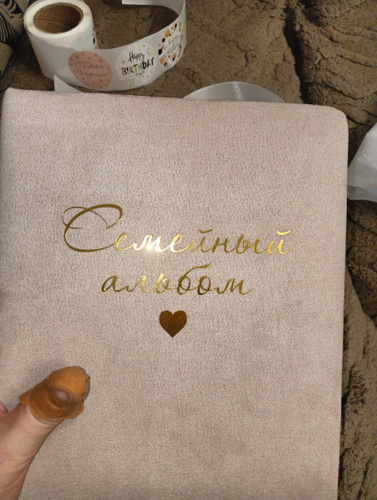 Happy
BIRTHDAY
Семейный
альбом